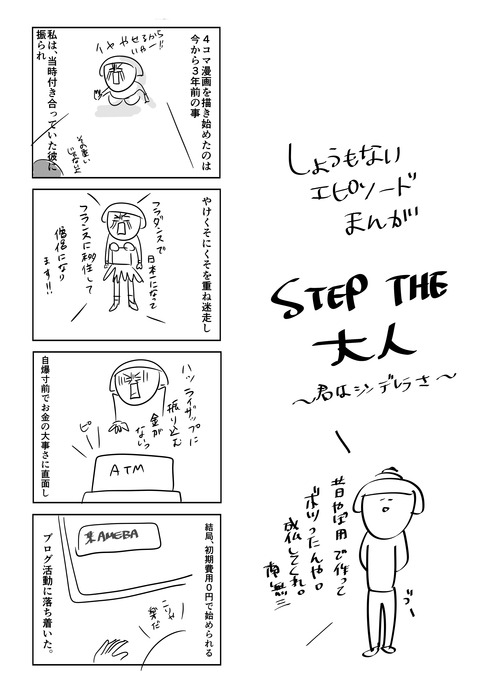 しょうもない
エピソード
まんが
STEP THE
大人
～君はシンデレラさ～
昔やぽ用で作って
ボツったんや。
成仏してくれ。
南無三
４コマ漫画を描き始めたのは
今から３年前の事
イヤ やせるから
いやー!!
私は、当時付き合っていた彼に
振られ
そのまい
じゃない
やけくそにくそを重ね迷走し
フラダンスで
日本一になって
フランスに移住して
僧侶になり
ます!!
ハッ ライザップに
振り込む
金が
ないっ
ピー
ATM
自爆寸前でお金の大事さに直面し
結局、初期費用０円で始められる
楽AMEBA
こりゃ
楽だ
ブログ活動に落ち着いた。